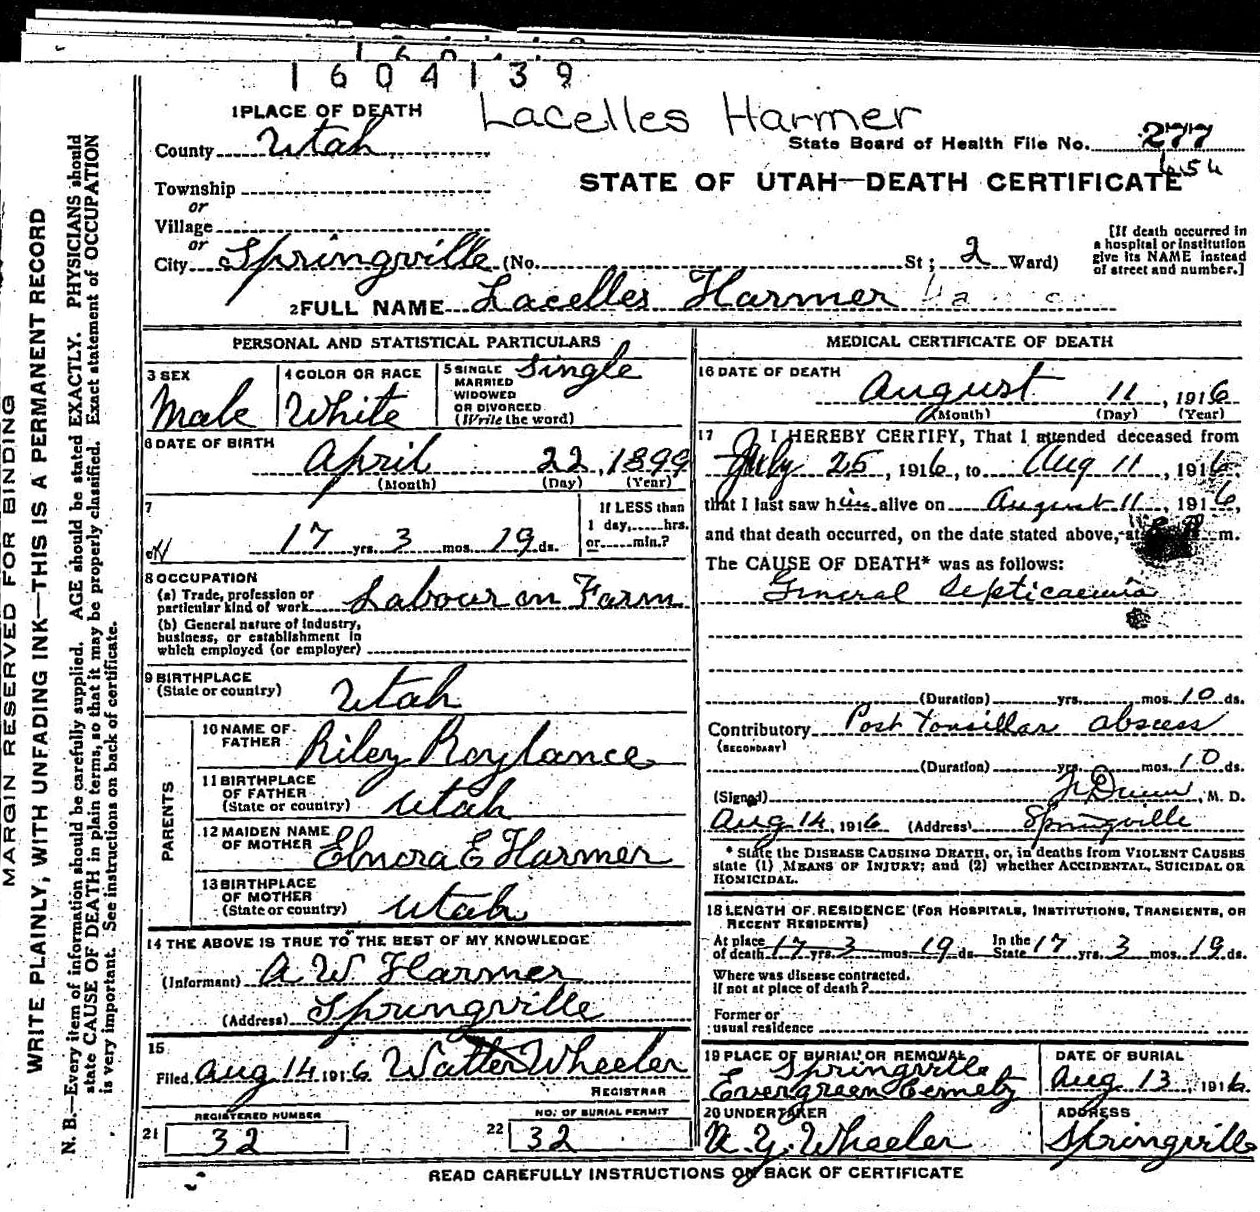 1604139
Lacelles Harmer
1 PLACE OF DEATH
County Utah
State Board of Health File No. 277
STATE OF UTAH—DEATH CERTIFICATE
Township
or
Village
or
City Springville (No. St; 2 Ward)
[If death occurred in
a hospital or institution
give its NAME instead
of street and number.]
2 FULL NAME Lacelles Harmer
PERSONAL AND STATISTICAL PARTICULARS
3 SEX
Male
4 COLOR OR RACE
White
5 SINGLE
MARRIED
WIDOWED
OR DIVORCED
(Write the word)
Single
6 DATE OF BIRTH
April 22, 1899
(Month) (Day) (Year)
7
17 yrs. 3 mos. 19 ds.
If LESS than
1 day, hrs.
or min.?
8 OCCUPATION
(a) Trade, profession or
particular kind of work Labour on Farm
(b) General nature of industry,
business, or establishment in
which employed (or employer)
9 BIRTHPLACE
(State or country) Utah
PARENTS
10 NAME OF
FATHER Riley Roylance
11 BIRTHPLACE
OF FATHER
(State or country) Utah
12 MAIDEN NAME
OF MOTHER Elnora E Harmer
13 BIRTHPLACE
OF MOTHER
(State or country) Utah
14 THE ABOVE IS TRUE TO THE BEST OF MY KNOWLEDGE
(Informant) A W Harmer
(Address) Springville
15
Filed Aug 14 1916 Walter Wheeler
REGISTRAR
REGISTERED NUMBER
21 32
NO. OF BURIAL PERMIT
22 32
MEDICAL CERTIFICATE OF DEATH
16 DATE OF DEATH
August 11, 1916
(Month) (Day) (Year)
17 I HEREBY CERTIFY, That I attended deceased from
July 25, 1916, to Aug 11, 1916
that I last saw him alive on August 11, 1916,
and that death occurred, on the date stated above, at m.
The CAUSE OF DEATH* was as follows:
General Septicaemia
(Duration) yrs. mos. 10 ds.
Contributory Post Tonsillar abscess
(SECONDARY)
(Duration) yrs. mos. 10 ds.
(Signed) Dunn, M. D.
Aug 14, 1916 (Address) Springville
* State the DISEASE CAUSING DEATH, or, in deaths from VIOLENT CAUSES
state (1) MEANS OF INJURY; and (2) whether ACCIDENTAL, SUICIDAL OR
HOMICIDAL.
18 LENGTH OF RESIDENCE (FOR HOSPITALS, INSTITUTIONS, TRANSIENTS, OR
RECENT RESIDENTS)
At place
of death 17 yrs. 3 mos. 19 ds. In the
State 17 yrs. 3 mos. 19 ds.
Where was disease contracted.
If not at place of death?
Former or
usual residence
19 PLACE OF BURIAL OR REMOVAL
Springville
Evergreen Cemety
DATE OF BURIAL
Aug 13, 1916
20 UNDERTAKER
Wheeler
ADDRESS
Springville
READ CAREFULLY INSTRUCTIONS ON BACK OF CERTIFICATE
MARGIN RESERVED FOR BINDING
WRITE PLAINLY, WITH UNFADING INK—THIS IS A PERMANENT RECORD
N. B.—Every item of information should be carefully supplied. AGE should be stated EXACTLY. PHYSICIANS should
state CAUSE OF DEATH in plain terms, so that it may be properly classified. Exact statement of OCCUPATION
is very important. See instructions on back of certificate.